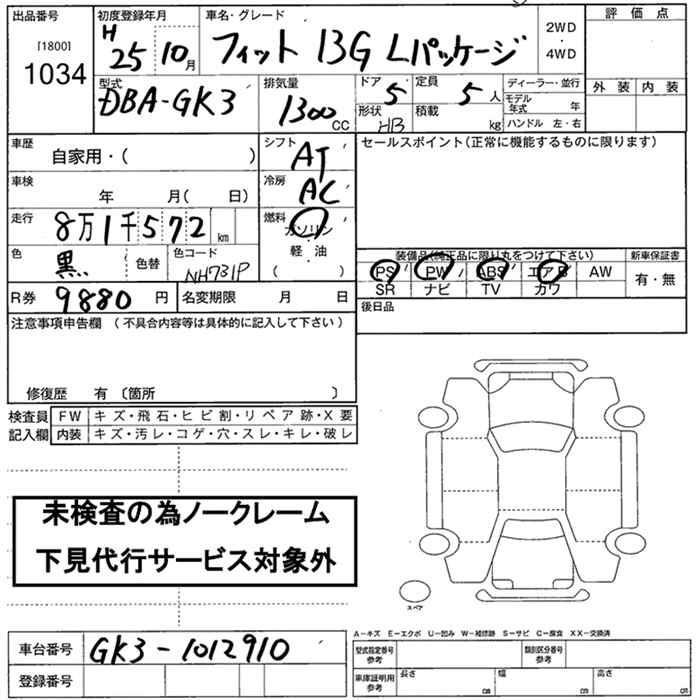 出品番号 初度登録年月 車名・グレード 2WD・4WD 評価点
[1800]
1034
H25 10月 フィット 13G Lパッケージ
型式 排気量 ドア 5 定員 5人 ディーラー・並行 外装 内装
DBA-GK3 1300cc 形状 HB 積載 kg モデル年式 年
ハンドル 左・右
車歴 自家用・( ) シフト AT セールスポイント(正常に機能するものに限ります)
車検 年 月( 日) 冷房 AC
走行 8万1千572km 燃料 ガソリン・軽油・( )
色 黒 色替 色コード NH731P 装備品(純正品に限り丸をつけて下さい) 新車保証書
PS PW ABS エアB AW 有・無
SR ナビ TV カワ
R券 9880円 名変期限 月 日 後日品
注意事項申告欄 (不具合内容等は具体的に記入して下さい)
修復歴 有 〔箇所 〕
検査員記入欄 FW キズ・飛石・ヒビ割・リペア跡・X要
内装 キズ・汚レ・コゲ・穴・スレ・キレ・破レ
未検査の為ノークレーム
下見代行サービス対象外
スペア
A-キズ E-エクボ U-凹み W-補修跡 S-サビ C-腐食 XX-交換済
車台番号 GK3-1012910 型式指定番号 参考 類別区分番号 参考
登録番号 車庫証明用 参考 長さ cm 幅 cm 高さ cm